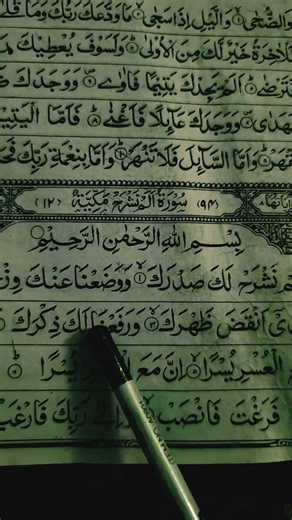 وَالضُّحٰى ۙ وَالَّيْلِ اِذَا سَجٰى ۙ مَا وَدَّعَكَ رَبُّكَ وَمَا
خَيْرٌ لَّكَ مِنَ الْاُوْلٰى ؕ وَلَسَوْفَ يُعْطِيْكَ
فَتَرْضٰى ؕ اَلَمْ يَجِدْكَ يَتِيْمًا فَاٰوٰى ۪ وَوَجَدَكَ
فَهَدٰى ۪ وَوَجَدَكَ عَآئِلًا فَاَغْنٰى ؕ فَاَمَّا الْيَتِيْمَ
تَقْهَرْ ؕ وَاَمَّا السَّآئِلَ فَلَا تَنْهَرْ ؕ وَاَمَّا بِنِعْمَةِ رَبِّكَ
اٰيَاتُهَا ٨ (٩٤) سُوْرَةُ اَلَمْ نَشْرَحْ مَكِّيَّةٌ (١٢)
بِسْمِ اللّٰهِ الرَّحْمٰنِ الرَّحِيْمِ
نَشْرَحْ لَكَ صَدْرَكَ ۙ١ وَوَضَعْنَا عَنْكَ
اَنْقَضَ ظَهْرَكَ ۙ٣ وَرَفَعْنَا لَكَ ذِكْرَكَ
الْعُسْرِ يُسْرًا ۙ اِنَّ مَعَ يُسْرًا ؕ٦
فَرَغْتَ فَانْصَبْ ۙ رَبِّكَ فَارْغَبْ